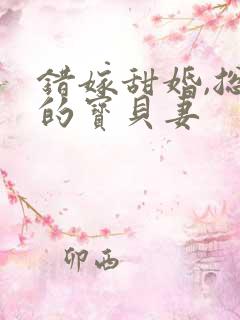 錯嫁甜婚,
的寶貝妻
卯西